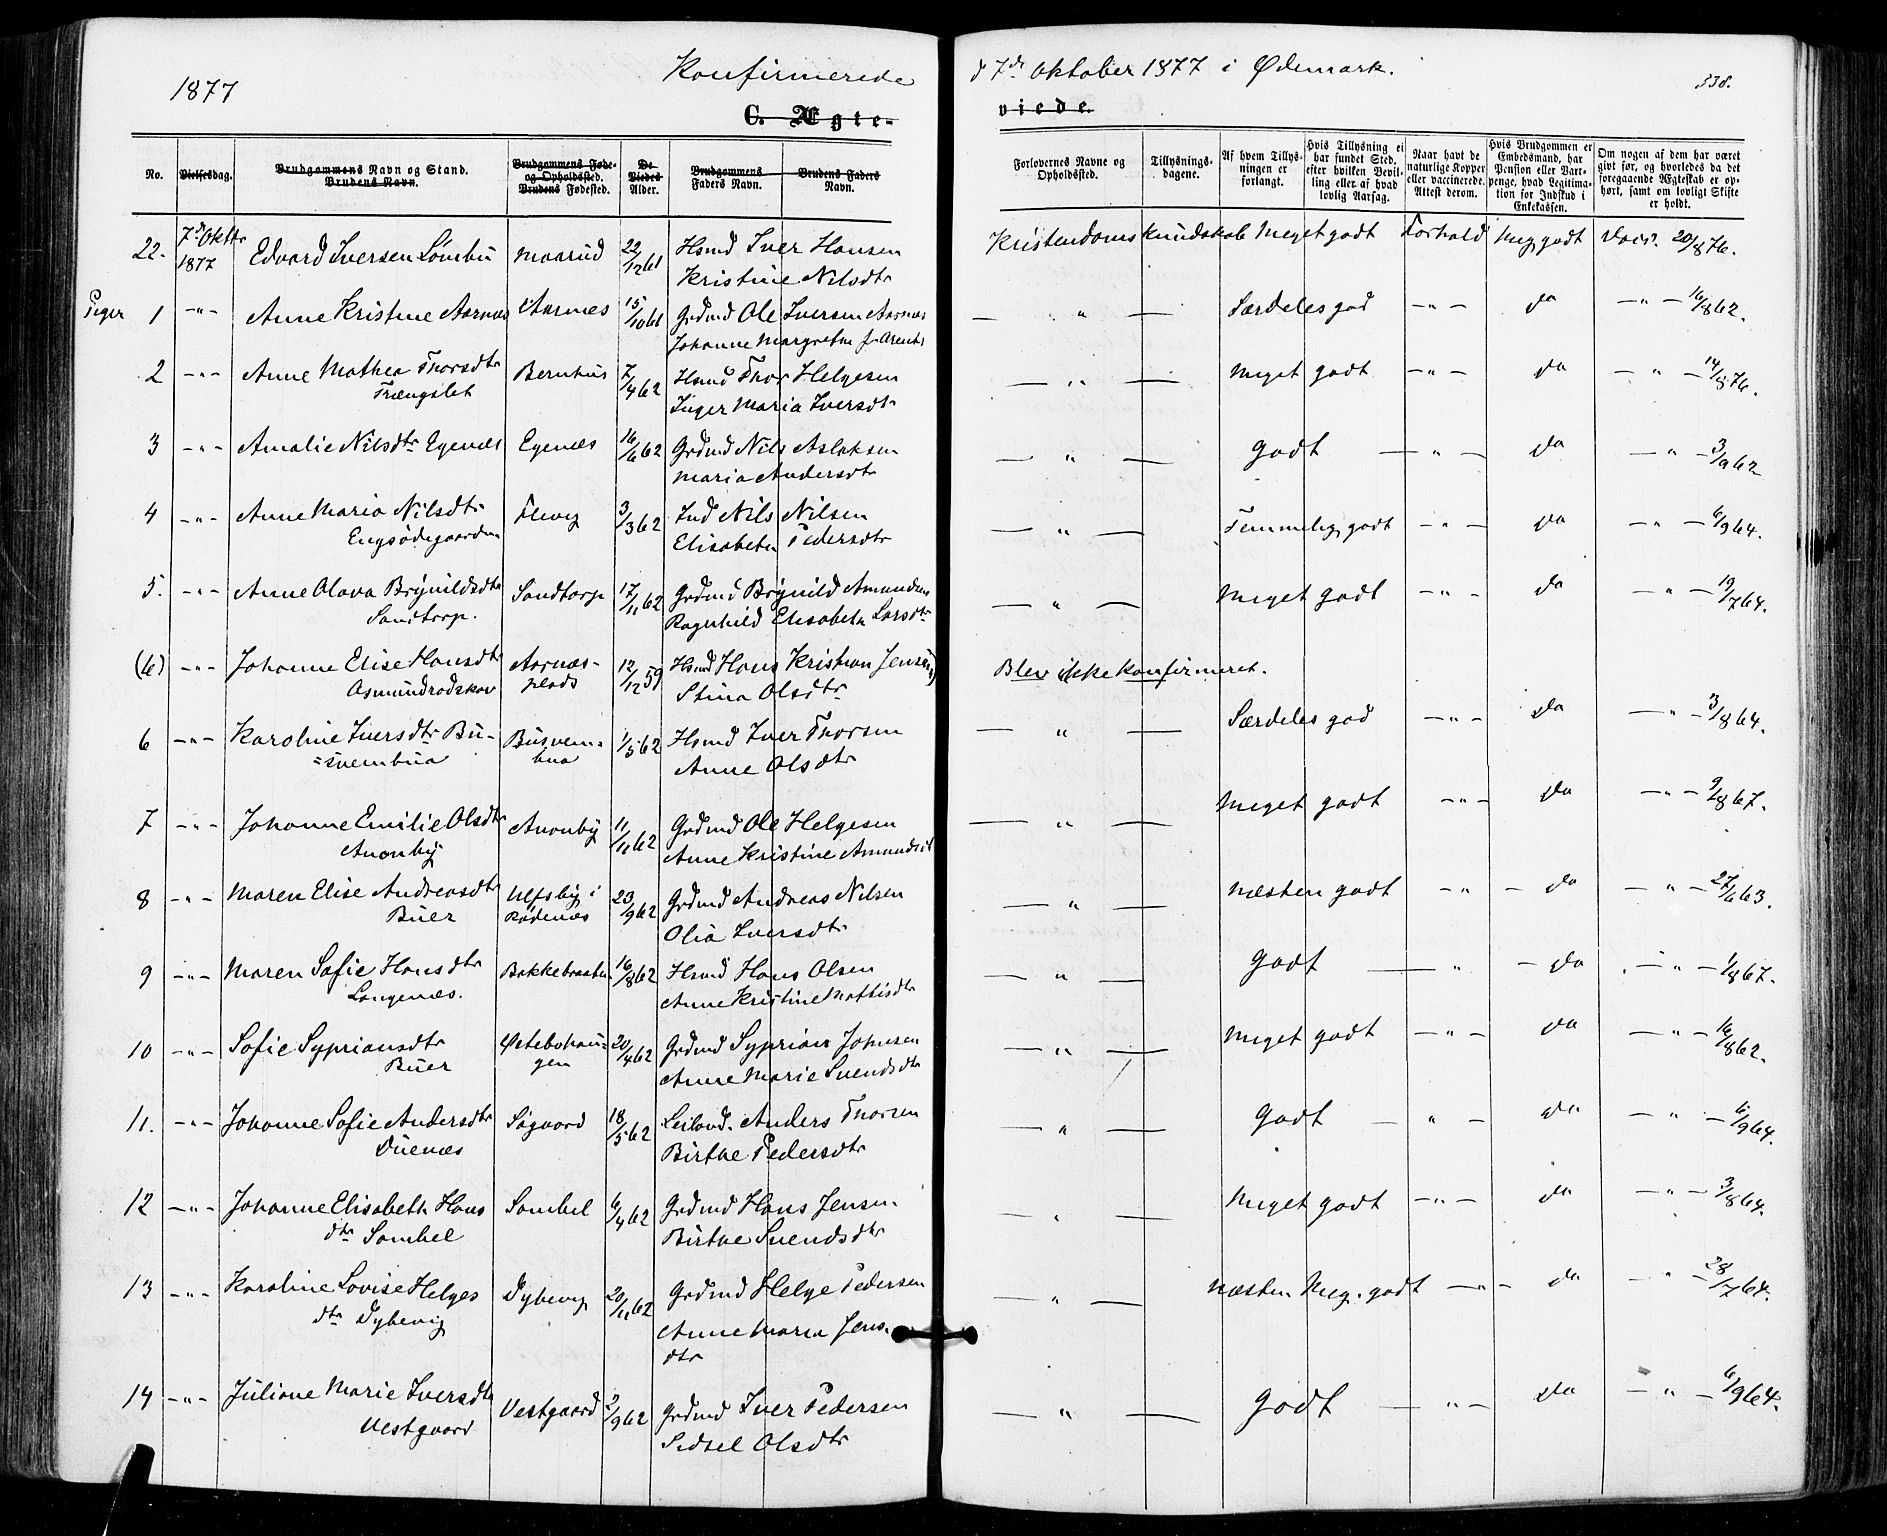 1877 Konfirmerede d 7de Oktober 1877 i Ødemark. 338.
C. Ægteviede.
No.
Vielsesdag.
Brudgommens Navn og Stand.
Brudens Navn.
Brudgommens Føde- og Opholdssted.
Brudens Fødested.
De Viedes Alder.
Brudgommens Faders Navn.
Brudens Faders Navn.
Forlovernes Navne og Opholdssted.
Tillysningsdagene.
Af hvem Tillysningen er forlangt.
Hvis Tillysning ei har fundet Sted, efter hvilken Bevilling eller af hvad lovlig Aarsag.
Naar havt de naturlige Kopper eller vaccinerede. Attest derom.
Hvis Brudgommen er Embedsmand, har Pension eller Vartpenge, hvad Legitimation for Indskud i Enkekassen.
Om nogen af dem har været givt før, og hvorledes da det foregaaende Ægteskab er ophørt, samt om lovligt Skifte er holdt.
22. 7de Oktbr 1877 Edvard Iversen Lømbu Maarud 22/12 61 Hsmd Iver Hansen Kristendoms kundskab Meget godt Forhold Meg. godt Vacc. 20/8 76.
Kristine Nilsdtr
Piger 1 -"- Anne Kristine Aarnæs Aarnæs 15/10 61 Grdmd Ole Iversen Aarnæs — " — Særdeles god -"- Do — " — 16/8 62.
Johanne Margrethe f. Arents
2 -"- Anne Mathea Thorsdtr Bernhus 7/4 62 Hsmd Thor Helgesen — " — Meget godt -"- Do — " — 14/8 76.
Trængslet Inger Maria Iversdtr
3 -"- Amalie Nilsdtr Egenæs Egenæs 16/6 62 Grdmd Nils Aslaksen — " — Godt — " — Do — " — 3/9 62
Maria Andersdtr
4 -"- Anne Maria Nilsdtr Flevig 3/3 62 Ind Nils Nilsen — " — Temmelig godt -"- Do — " — 6/9 64.
Engsødegaarden Elisabeth Pedersdtr
5. -"- Anne Olava Brynildsdtr Sandtorp 17/11 62 Grdmd Brynild Amundsen — " — Meget godt -"- Do — " — 19/7 64.
Sandtorp. Ragnhild Elisabeth Larsdtr
(6) -"- Johanne Elise Hansdtr Aarnæs- 12/12 59 Hsmd Hans Kristian Jensen) Blev ikke konfirmeret.
Asmundrødskov plads Stina Olsdtr
6 -"- Karoline Iversdtr Bu- Busvem- 1/5 62 Hsmd Iver Thorsen — " — Særdeles god -"- Do — " — 3/8 64.
=svembua bua Anne Olsdtr
7 -"- Johanne Emilie Olsdtr Anonby 11/11 62 Grdmd Ole Helgesen — " — Meget godt -"- Do — " — 9/8 67.
Anonby Anne Kristine Amundsdt
8 -"- Maren Elise Andreasdtr Ulfsby i 23/9 62 Grdmd Andreas Nilsen — " — Næsten godt -"- Do — " — 27/6 63.
Buer Rødenæs Olia Iversdtr
9 -"- Maren Sofie Hansdtr Bakkebraaten 16/8 62 Hsmd Hans Olsen — " — Godt — " — Do — " — 1/8 67.
Langenæs. Anne Kristine Mattisdtr
10 -"- Sofie Sypriansdtr Østebohau- 20/4 62 Grdmd Syprian Johnsen — " — Meget godt -"- Do — " — 16/8 62.
Buer gen Anne Marie Svendsdtr
11. -"- Johanne Sofie Andersdtr Søgaard 18/5 62 Leiland. Anders Thorsen — " — Godt — " — Do — " — 6/9 64.
Duenæs Birthe Pedersdtr
12 -"- Johanne Elisabeth Hans Sombel 6/4 62 Grdmd Hans Jensen — " — Meget godt -"- Do — " — 3/8 64.
dtr Sombel Birthe Svendsdtr
13 -"- Karoline Lovise Helges Dybevig 20/11 62 Grdmd Helge Pedersen — " — Næsten Meg. godt -"- Do — " — 28/7 64.
dtr Dybevig Anne Maria Jens-
dtr
14 -"- Juliane Marie Iversdtr Vestgaard 2/9 62 Grdmd Iver Pedersen — " — Godt — " — Do — " — 6/9 64.
Vestgaard Sidsel Olsdtr